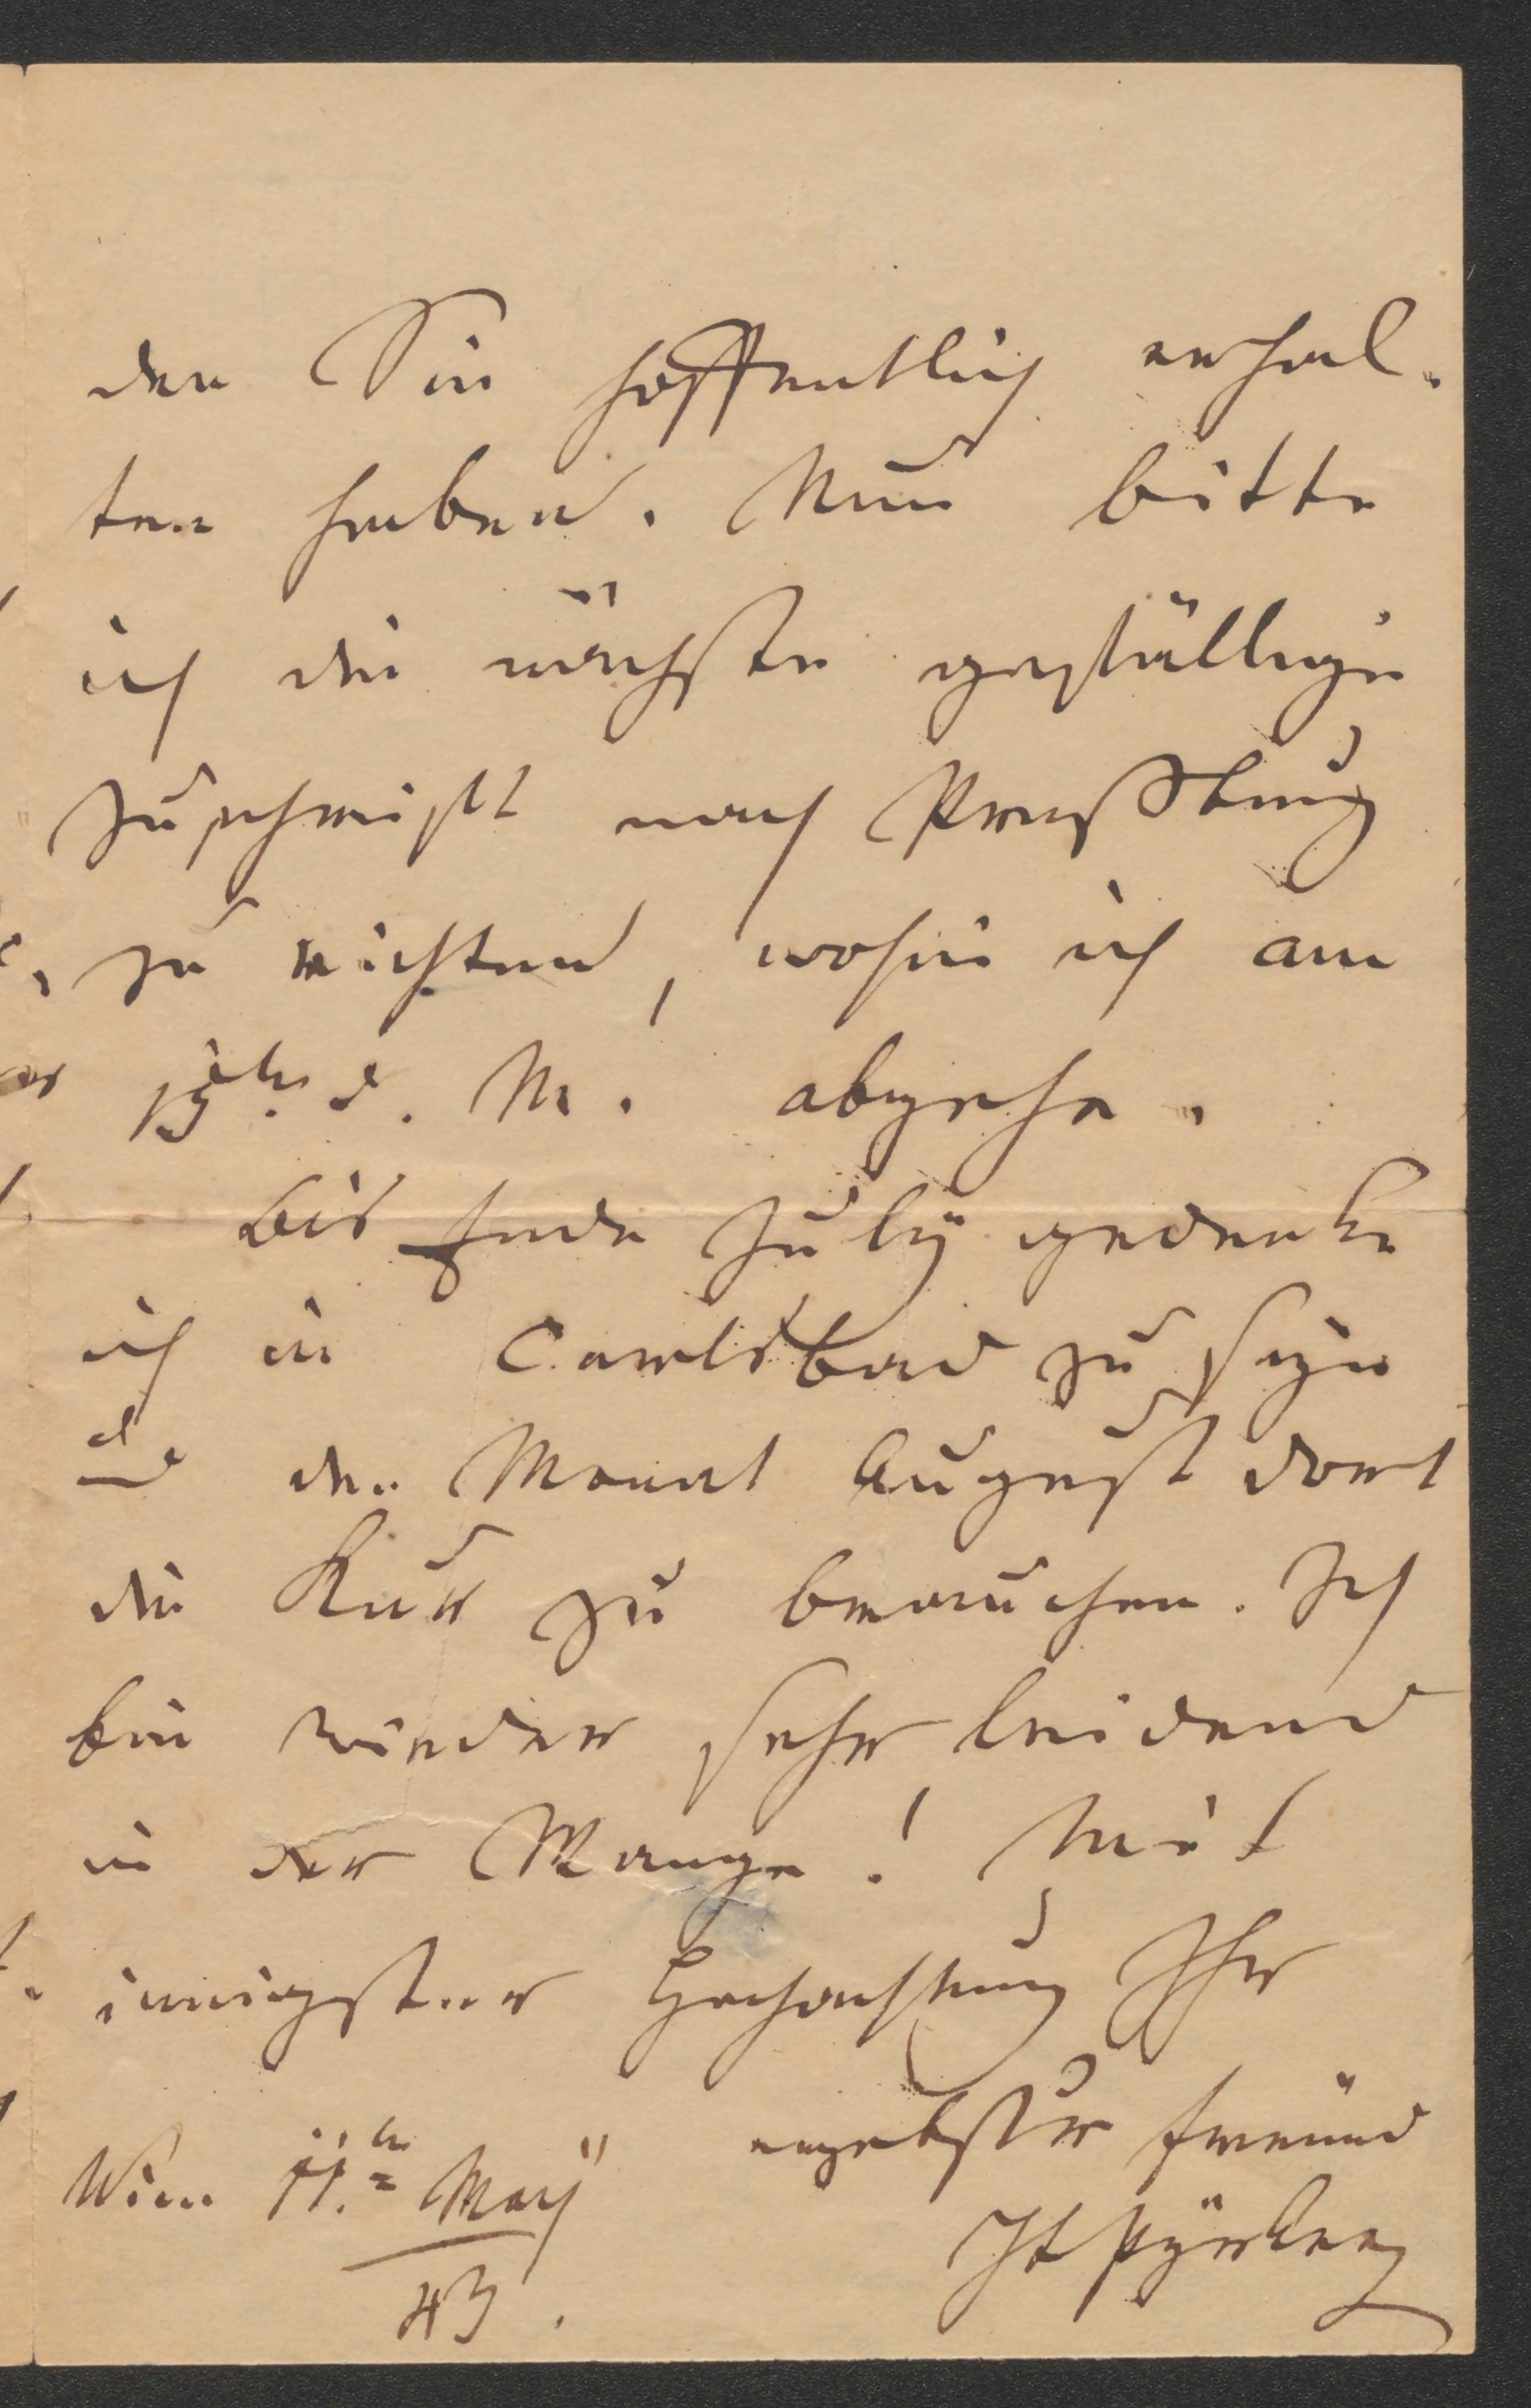 den Sie hoffentlich erhal-
ten haben. Nun bitte
ich die nächste gefällige
Zuschrift nach Preßburg
zu richten, wohin ich am
15ten d. M. abgehe.
Bis Ende July gedenke
ich in Carlsbad zu seyn
u den Monat August dort
die Kur zu brauchen. Ich
bin wieder sehr leidend
in der Mange! Mit
innigster Hochachtung Ihr
ergebster Freund
Wien 11ten May
Pyrker
43.